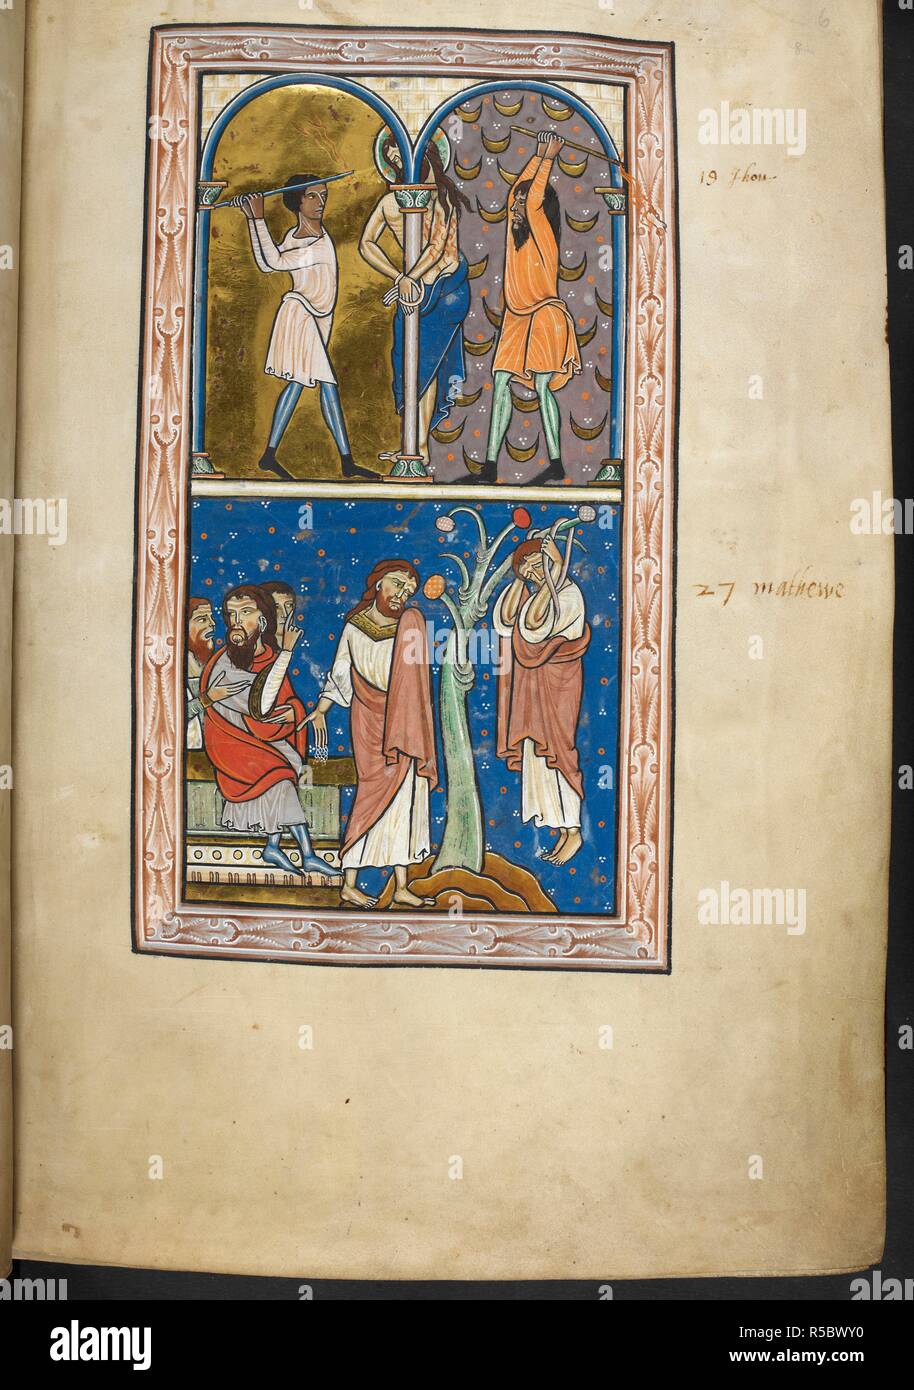 6
8
19 Jhon
27 mathewe
alamy
Image ID: R5BWY0
www.alamy.com